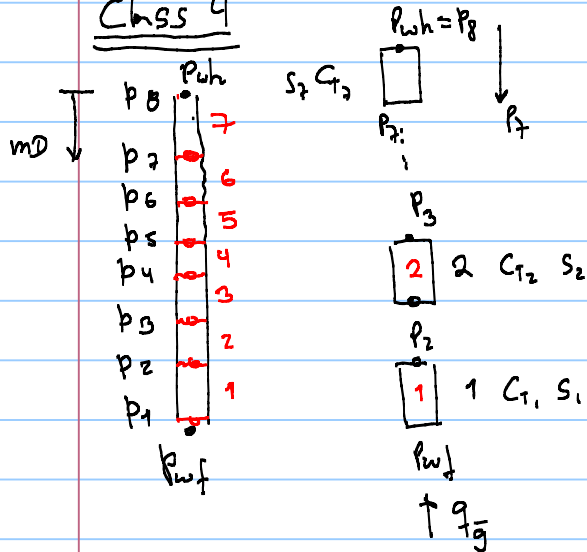 Class 4
Pwh
P8
7
mD
P7
6
P6
5
P5
4
P4
3
P3
2
P2
1
P1
Pwf
Pwh = P8
S7 CT7
P7
P7:
P3
2 2 CT2 S2
P2
1 1 CT1 S1
Pwf
↑ qg̅